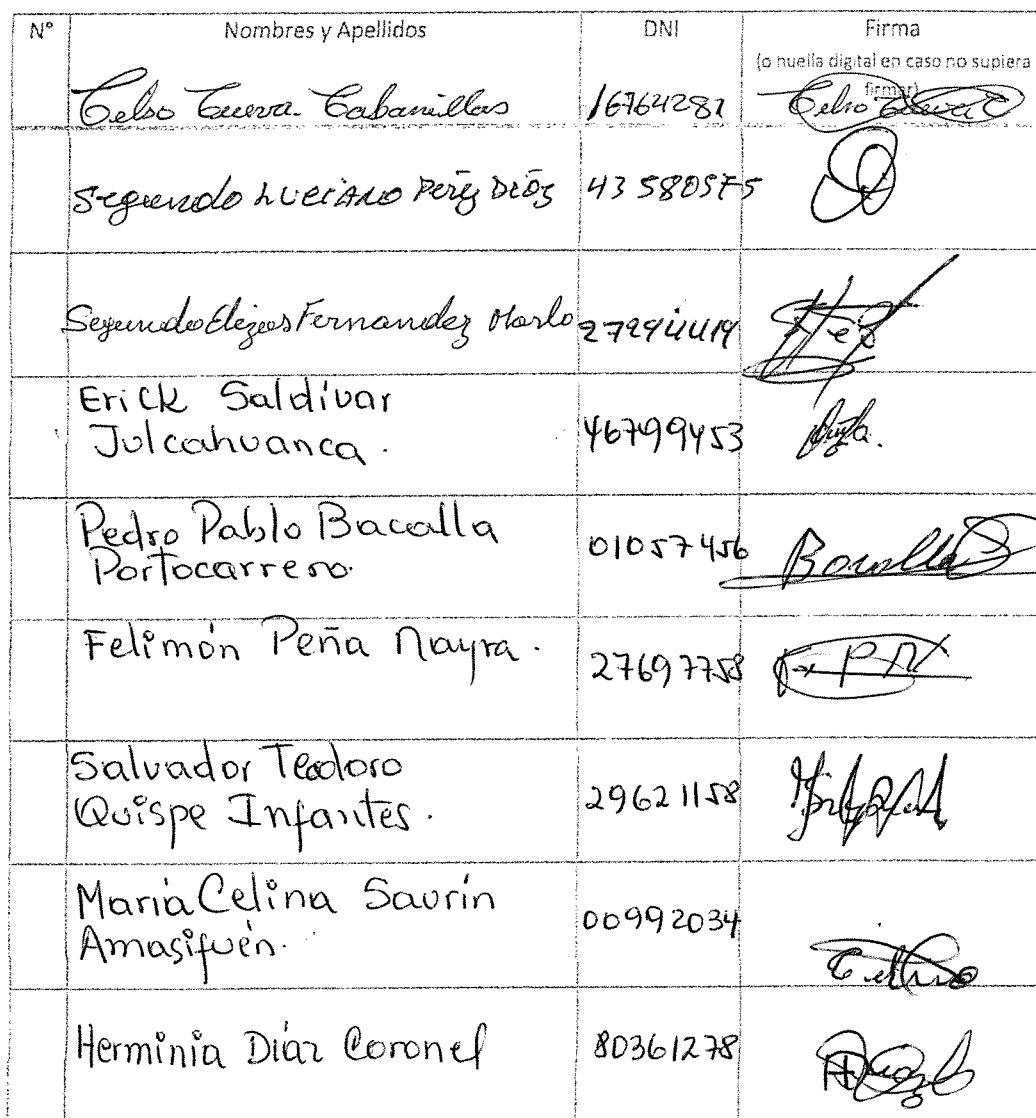 N° Nombres y Apellidos DNI Firma
(o huella digital en caso no supiera
firmar)
Celso Cueva Cabanillas 16764281 Celso Cueva C
Segundo LUCIANO Pérez Díaz 43580575
Segundo Fernandez 27294419
Erick Saldívar
Julcahuanca. 46799453
Pedro Pablo Bacalla
Portocarrero. 01057456 Bacalla
Felimón Peña Nayra. 27697758
Salvador Teodoro
Quispe Infantes. 29621158
María Celina Saurín
Amasifuén. 00992034
Herminia Díaz Coronel 80361278